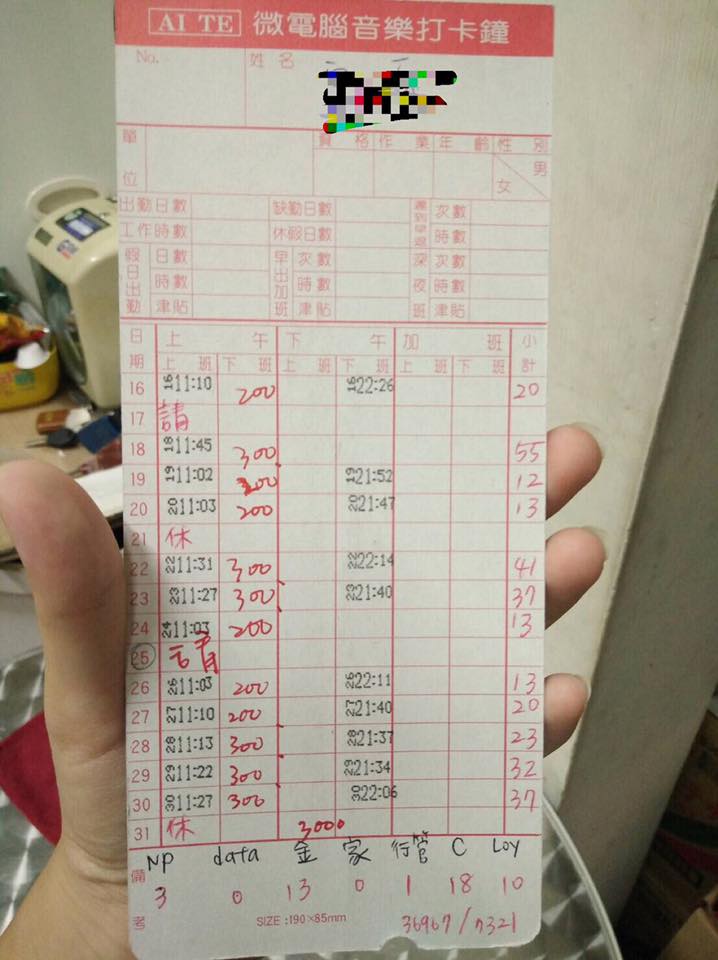 AI TE 微電腦音樂打卡鐘
No. 姓名
單位 資格 作業 年齡 性別 男 女
出勤日數 缺勤日數 遲到早退 次數
工作時數 休假日數 時數
假日出勤 日數 早出加班 次數 深夜班 次數
時數 時數 時數
津貼 津貼 津貼
日期 上午 下午 加班 小計
上班 下班 上班 下班 上班 下班
16 16 11:10 200 16 22:26 20
17 請
18 18 11:45 300 55
19 19 11:02 200 19 21:52 12
20 20 11:03 200 20 21:47 13
21 休
22 22 11:31 300 22 22:14 41
23 23 11:27 300 23 21:40 37
24 24 11:03 200 13
25 請
26 26 11:03 200 26 22:11 13
27 27 11:10 200 27 21:40 20
28 28 11:13 300 28 21:37 23
29 29 11:22 300 29 21:34 32
30 30 11:27 300 30 22:06 37
31 休 3000
備考 NP data 金 家 行管 C Loy
3 0 13 0 1 18 10
SIZE : 190×85mm